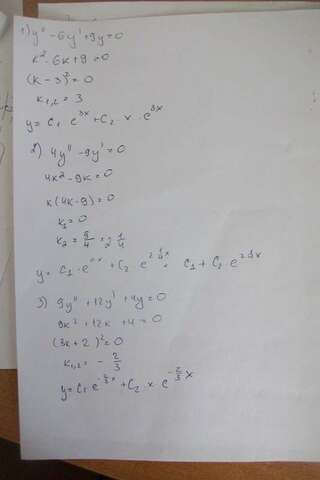 1) y'' - 6y' + 9y = 0
k² - 6k + 9 = 0
(k - 3)² = 0
k₁,₂ = 3
y = C₁ e^{3x} + C₂ x · e^{3x}
2) 4y'' - 9y' = 0
4k² - 9k = 0
k(4k - 9) = 0
k₁ = 0
k₂ = 9/4 = 2 1/4
y = C₁ · e^{0x} + C₂ e^{2 1/4 x} = C₁ + C₂ e^{2 1/4 x}
3) 9y'' + 12y' + 4y = 0
9k² + 12k + 4 = 0
(3k + 2)² = 0
k₁,₂ = - 2/3
y = C₁ e^{-2/3 x} + C₂ x e^{-2/3 x}